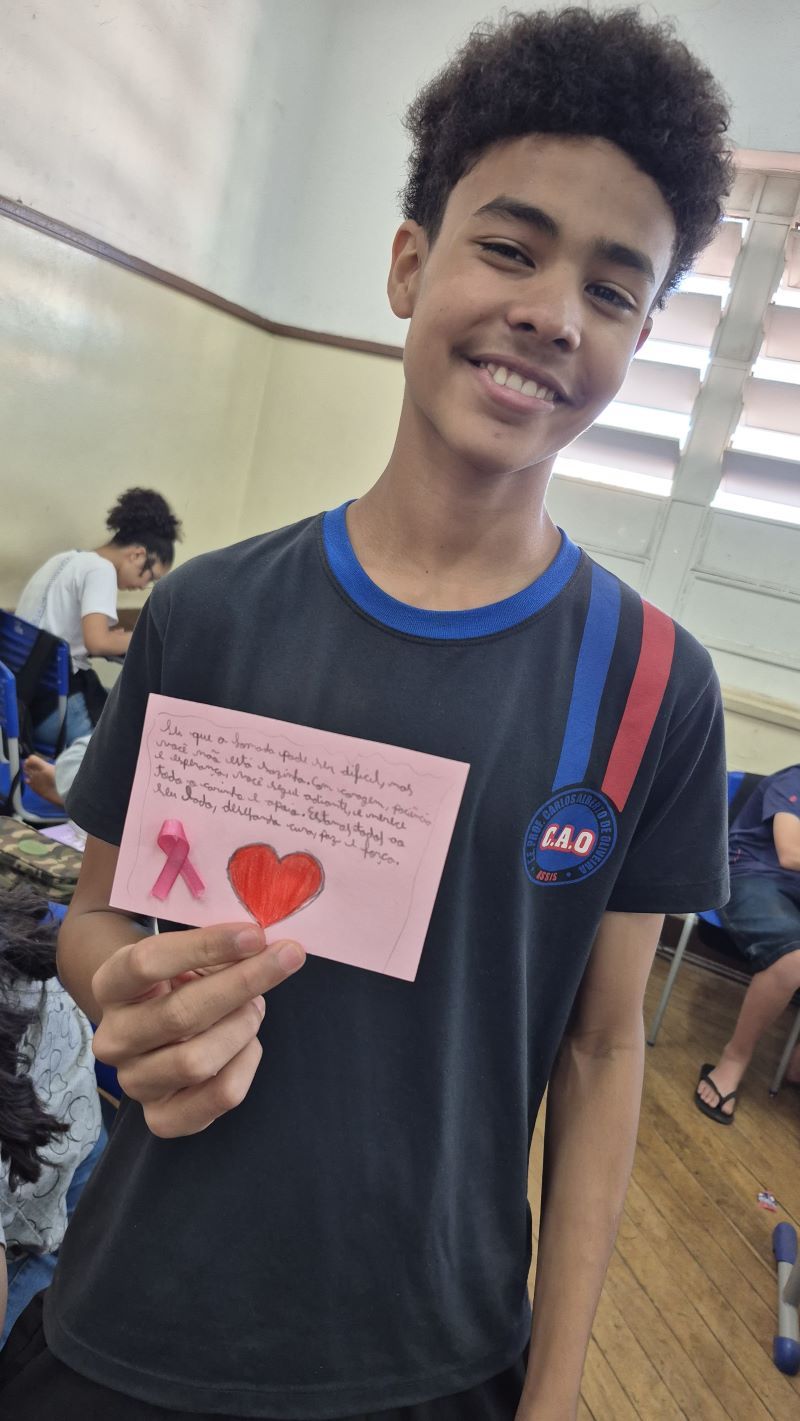 Sei que a jornada pode ser difícil, mas
você não está sozinha. Com coragem, paciência
e esperança, você segue adiante, e merece
todo o carinho e apoio. Estamos todos ao
seu lado, desejando cura, paz e força.
E.E PROF. CARLOS ALBERTO DE OLIVEIRA
C.A.O
ASSIS